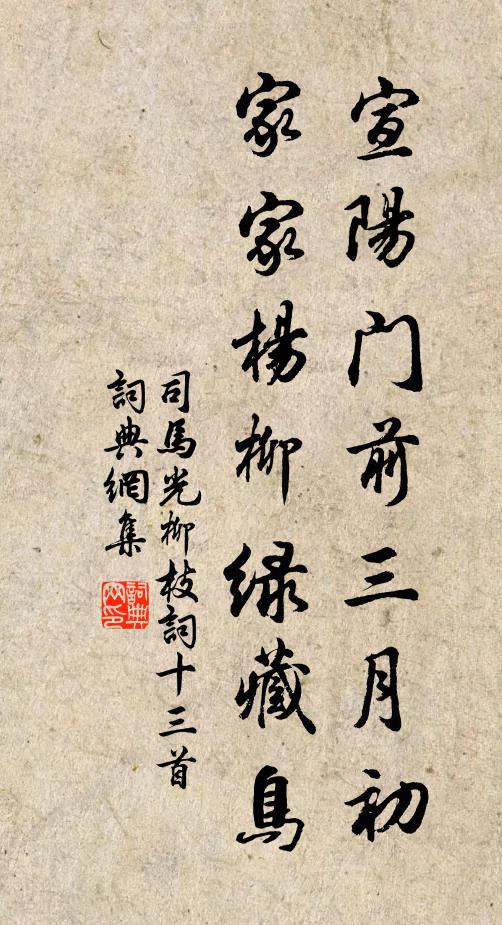 宣陽门前三月初
家家楊柳緑藏烏
司馬光柳枝詞十三首
詞典網集
詞典网印